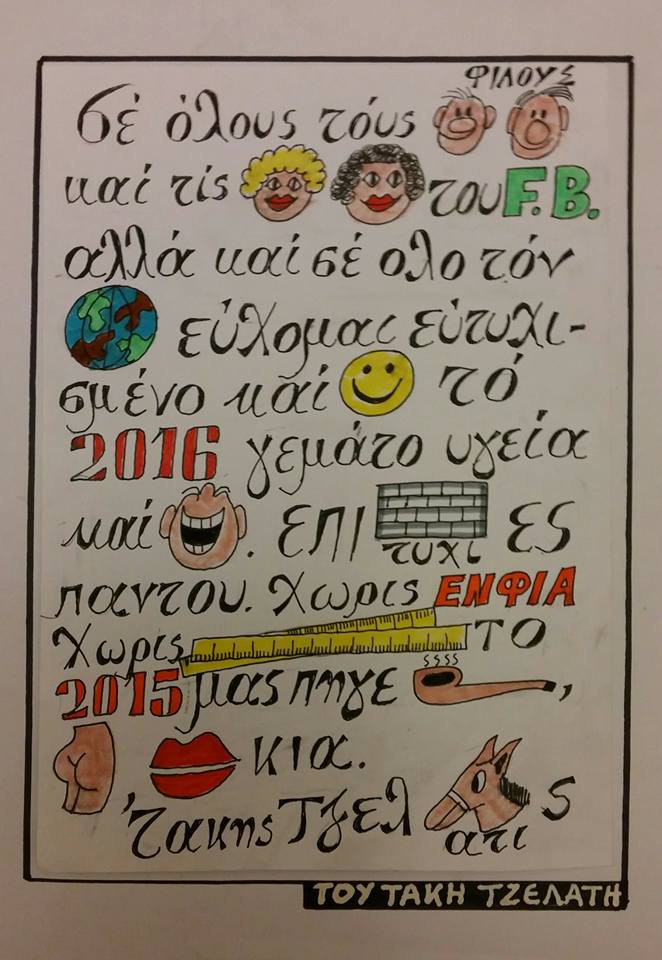 ΦΙΛΟΥΣ
σέ όλους τούς
καί τίς του F.B.
αλλά καί σέ ολο τόν
εύχομαι εύτυχι-
σμένο καί τό
2016 γεμάτο υγεία
καί . ΕΠΙ τυχι ες
παντου. Χωρις ΕΝΦΙΑ
Χωρις ΤΟ
2015 μας πηγε ,
κια.
Τακης Τζελ ατι ς
ΤΟΥ ΤΑΚΗ ΤΖΕΛΑΤΗ